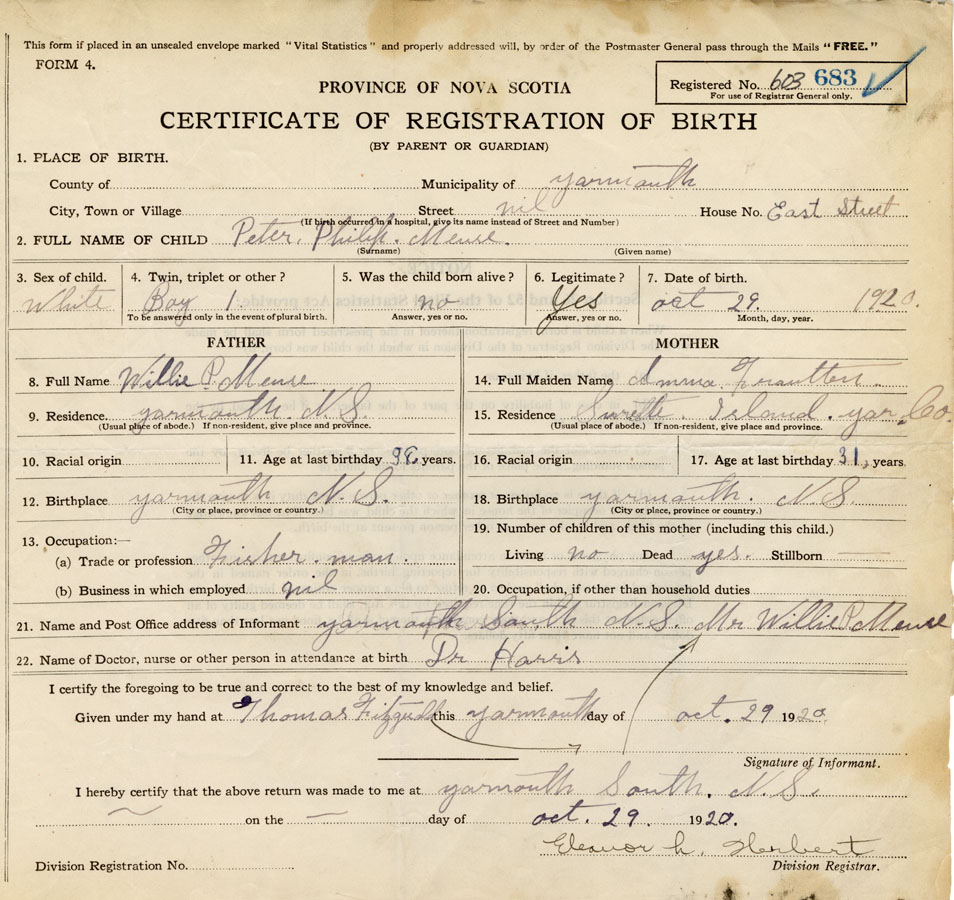 This form if placed in an unsealed envelope marked "Vital Statistics" and properly addressed will, by order of the Postmaster General pass through the Mails "FREE."
FORM 4.
Registered No. 603 683
For use of Registrar General only.
PROVINCE OF NOVA SCOTIA
CERTIFICATE OF REGISTRATION OF BIRTH
(BY PARENT OR GUARDIAN)
1. PLACE OF BIRTH.
County of Municipality of yarmouth
City, Town or Village Street nil House No. East Street
(If birth occurred in a hospital, give its name instead of Street and Number)
2. FULL NAME OF CHILD Peter. Philip. Meuse.
(Surname) (Given name)
3. Sex of child. 4. Twin, triplet or other? 5. Was the child born alive? 6. Legitimate? 7. Date of birth.
White Boy 1 no Yes oct 29. 1920.
To be answered only in the event of plural birth. Answer, yes or no. Answer, yes or no. Month, day, year.
FATHER MOTHER
8. Full Name Willie P. Meuse 14. Full Maiden Name
9. Residence. yarmouth. N.S. 15. Residence Surette Island. yar. Co.
(Usual place of abode.) If non-resident, give place and province. (Usual place of abode.) If non-resident, give place and province.
10. Racial origin 11. Age at last birthday years. 16. Racial origin 17. Age at last birthday 31, years.
12. Birthplace yarmouth N.S. 18. Birthplace yarmouth. N.S.
(City or place, province or country.) (City or place, province or country.)
13. Occupation:— 19. Number of children of this mother (including this child.)
(a) Trade or profession Fisher. man. Living no Dead yes. Stillborn
(b) Business in which employed nil 20. Occupation, if other than household duties
21. Name and Post Office address of Informant yarmouth South N.S. Mr Willie P Meuse
22. Name of Doctor, nurse or other person in attendance at birth Dr Harris
I certify the foregoing to be true and correct to the best of my knowledge and belief.
Given under my hand at Thomas this yarmouth day of oct. 29 1920
Signature of Informant.
I hereby certify that the above return was made to me at yarmouth South. N.S.
on the day of oct. 29. 1920.
Eleanor h. Herbert
Division Registration No. Division Registrar.